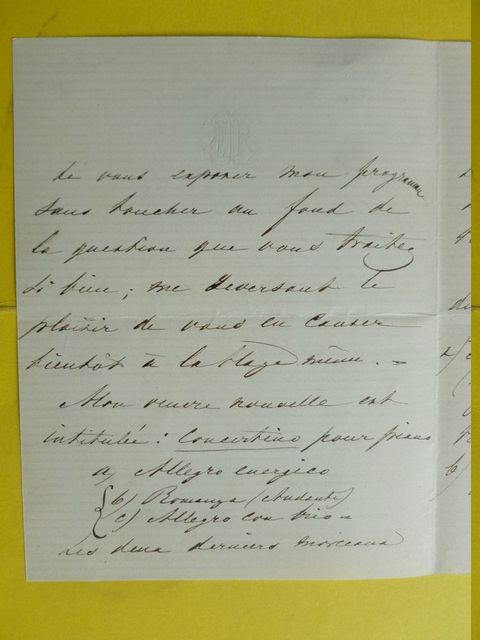 de vous exposer mon programme
sans toucher au fond de
la question que vous traitez
si bien; me reversant le
plaisir de vous en causer
bientôt à la Haye même. =
Mon œuvre nouvelle est
intitulée: Concertino pour piano
a) Allegro energico
b) Romanza (Andante)
c) Allegro con brio =
Les deux derniers morceaux
2)
b)